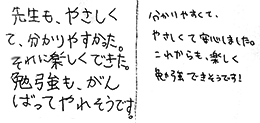 先生も、やさしく
て、分かりやすかった。
それに楽しくできた。
勉強も、がん
ばってやれそうです。
分かりやすくて、
やさしくて安心しました。
これからも、楽しく
勉強できそうです!